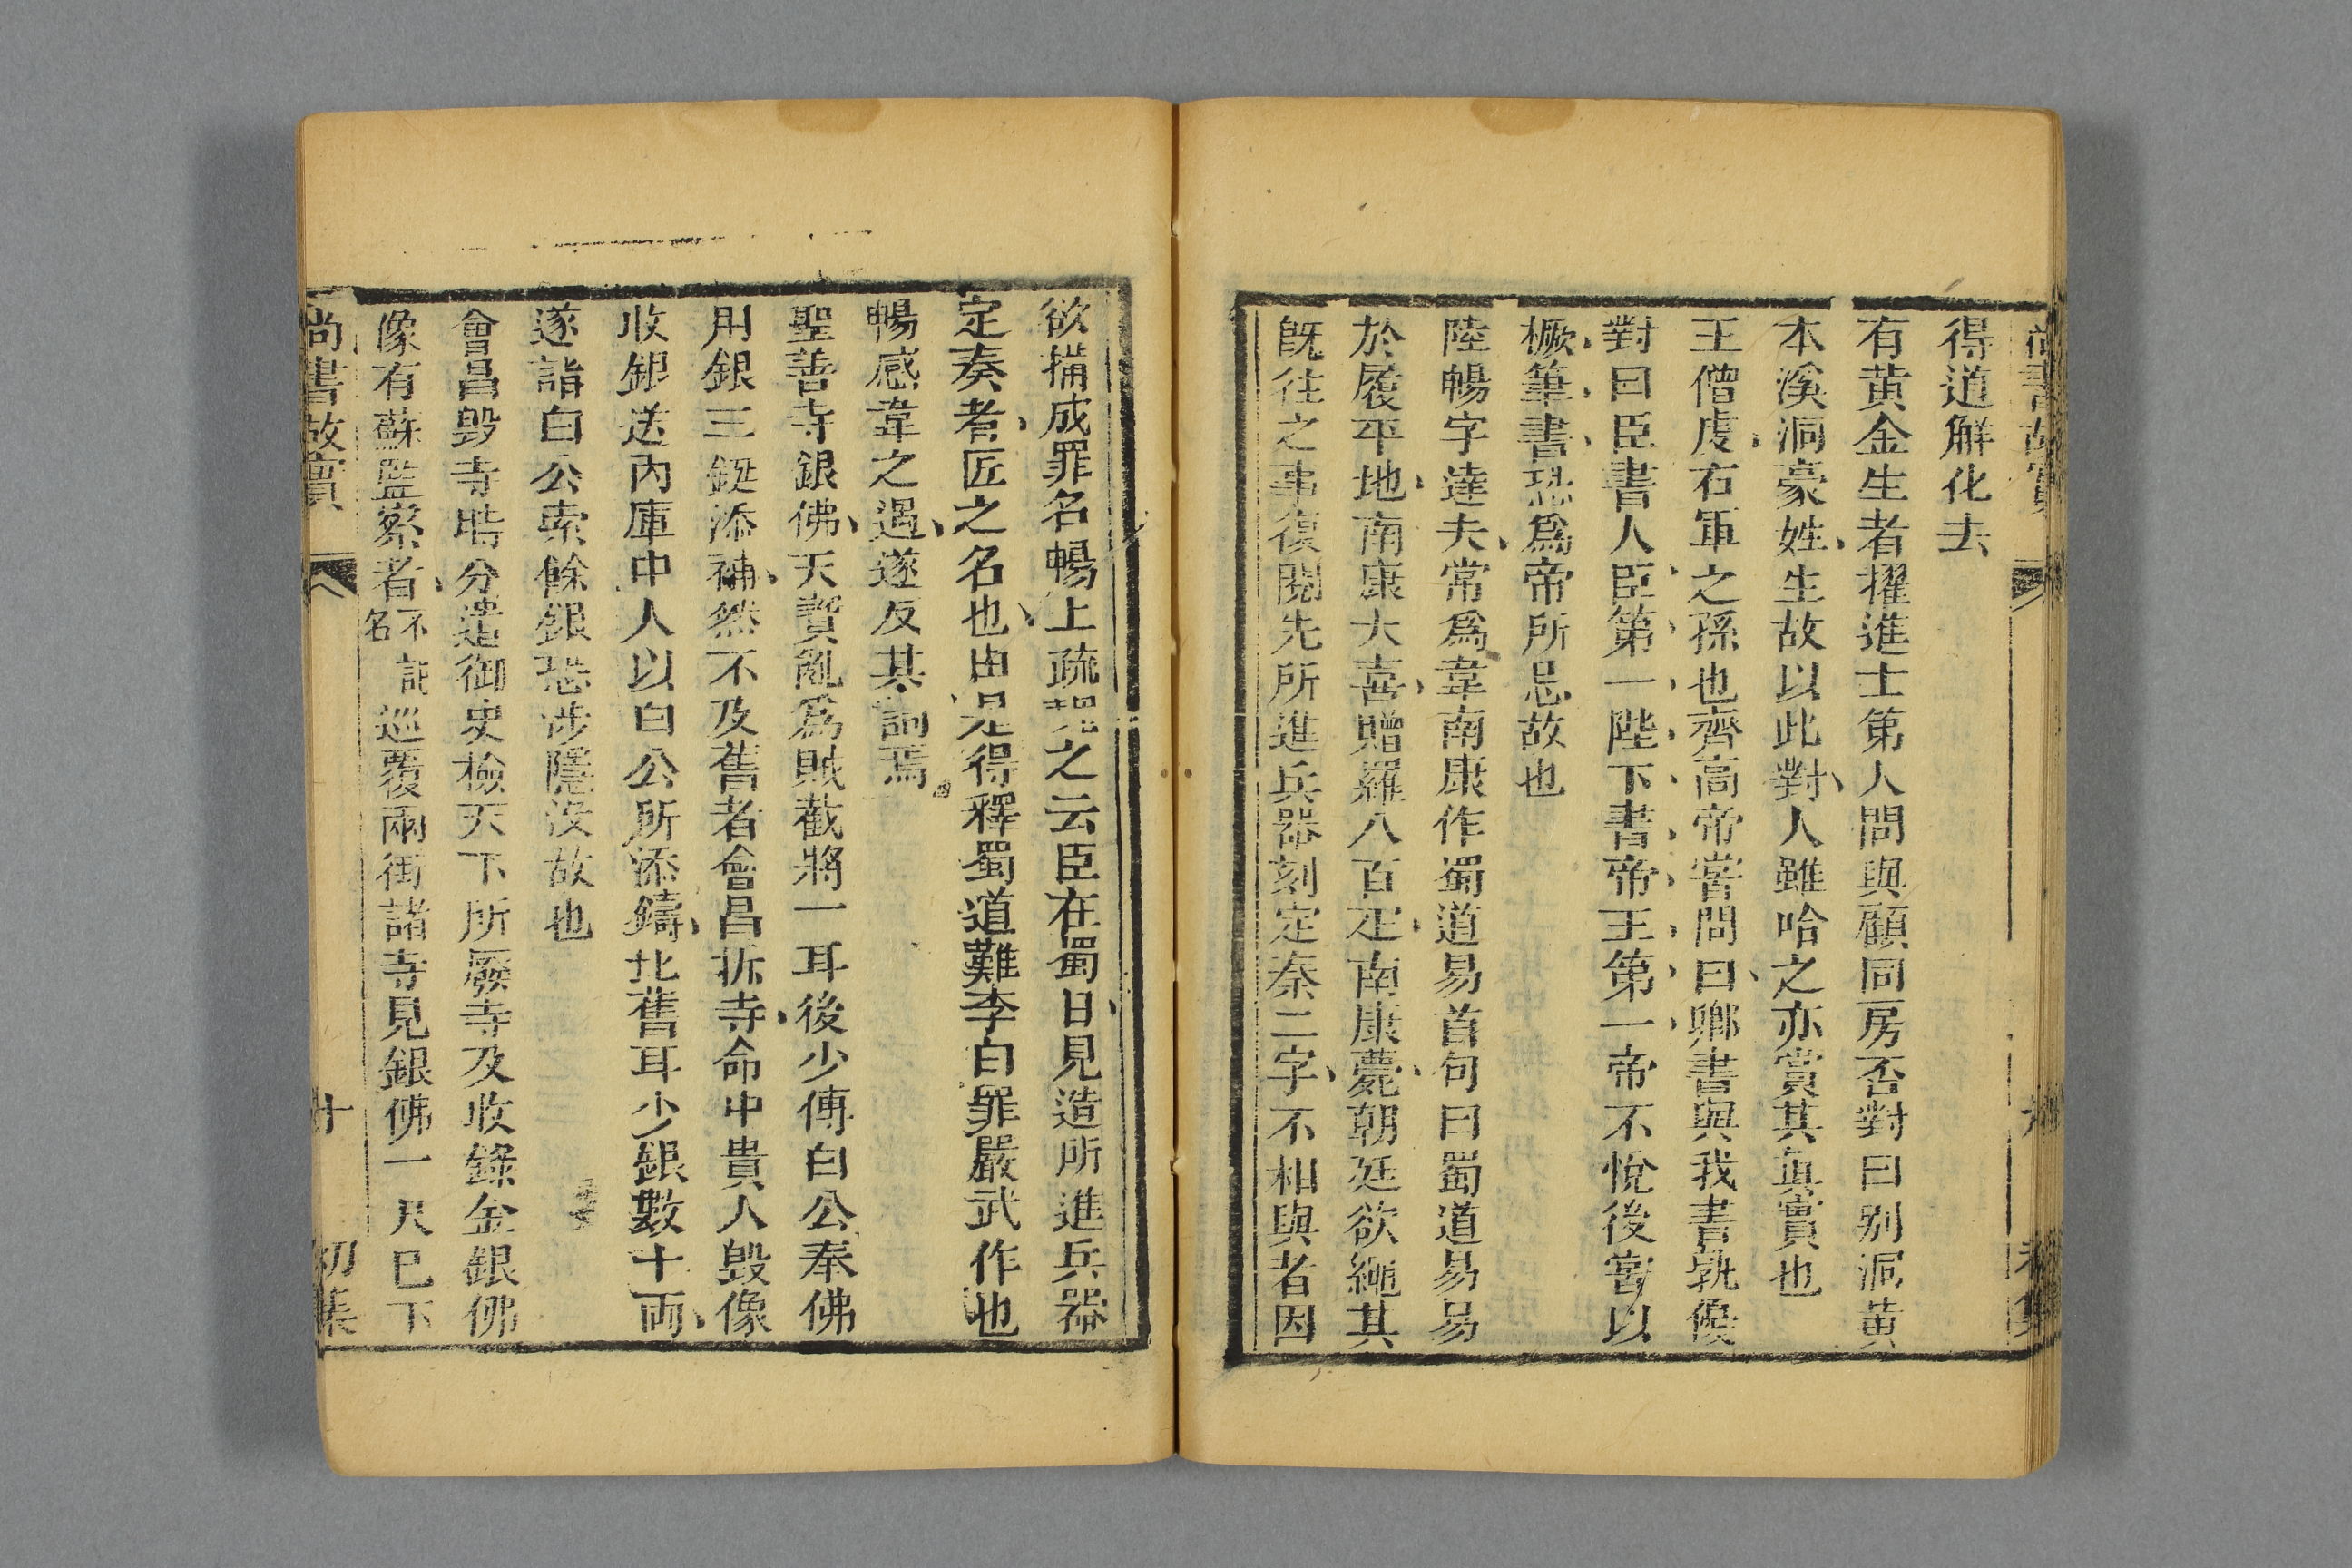 尚書故實
得道解化去
有黃金生者擢進士第人問與顧同房否對曰别洞黃
本溪洞豪姓生故以此對人雖哈之亦賞其真實也
王僧虔右軍之孫也齊高帝嘗問曰卿書與我書孰優
對曰臣書人臣第一陛下書帝王第一帝不悅後嘗以
橛筆書恐爲帝所忌故也
陸暢字達夫常爲韋南康作蜀道易首句曰蜀道易易
於履平地南康大喜贈羅八百疋南康薨朝廷欲繩其
旣往之事復閱先所進兵器刻定秦二字不相與者因
欲搆成罪名暢上疏理之云臣在蜀日見造所進兵器
定秦者匠之名也由是得釋蜀道難李白罪嚴武作也
暢感韋之遇遂反其詞焉
聖善寺銀佛天寶亂爲賊截將一耳後少傅白公奉佛
用銀三鋌添補然不及舊者會昌拆寺命中貴人毀像
收銀送內庫中人以白公所添鑄比舊耳少銀數十兩
遂詣白公索餘銀恐涉隱没故也
會昌毀寺時分遣御史檢天下所廢寺及收錄金銀佛
像有蘇監察者不記名巡覆兩街諸寺見銀佛一尺巳下
尚書故實 十 初集